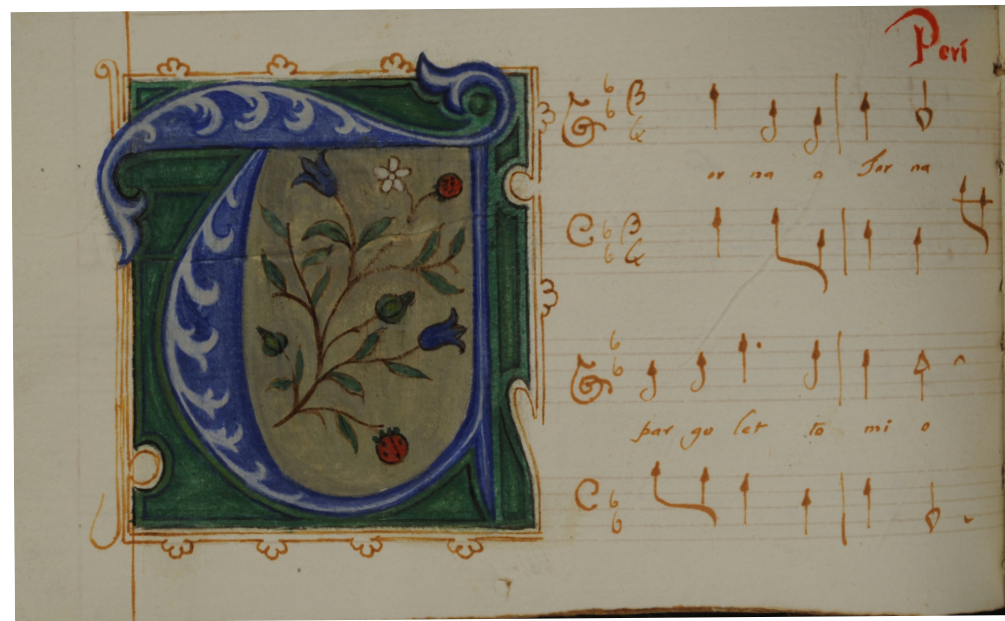 Peri
T
or na o Tor na
par go let to mi o